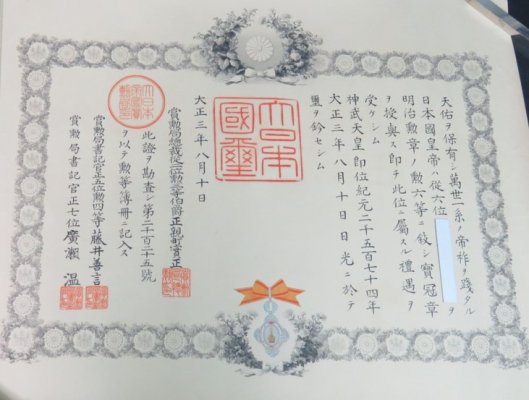 天佑ヲ保有シ萬世一系ノ帝祚ヲ踐タル
日本國皇帝ハ從六位 ヲ
明治勲章ノ勲六等ニ敍シ寶冠章
ヲ授與ス即チ此位ニ屬スル禮遇ヲ
受ケシム
神武天皇即位紀元二千五百七十四年
大正三年八月十日日光ニ於テ
璽ヲ鈐セシム
大日本
國璽
大正三年八月十日
賞勲局總裁從二位勲三等伯爵正親町實正
此證ヲ勘査シ第二千百二十五號
ヲ以テ勲等簿冊ニ記入ス
賞勲局書記官正五位勲四等藤井善言
賞勲局書記官正七位廣瀬 温